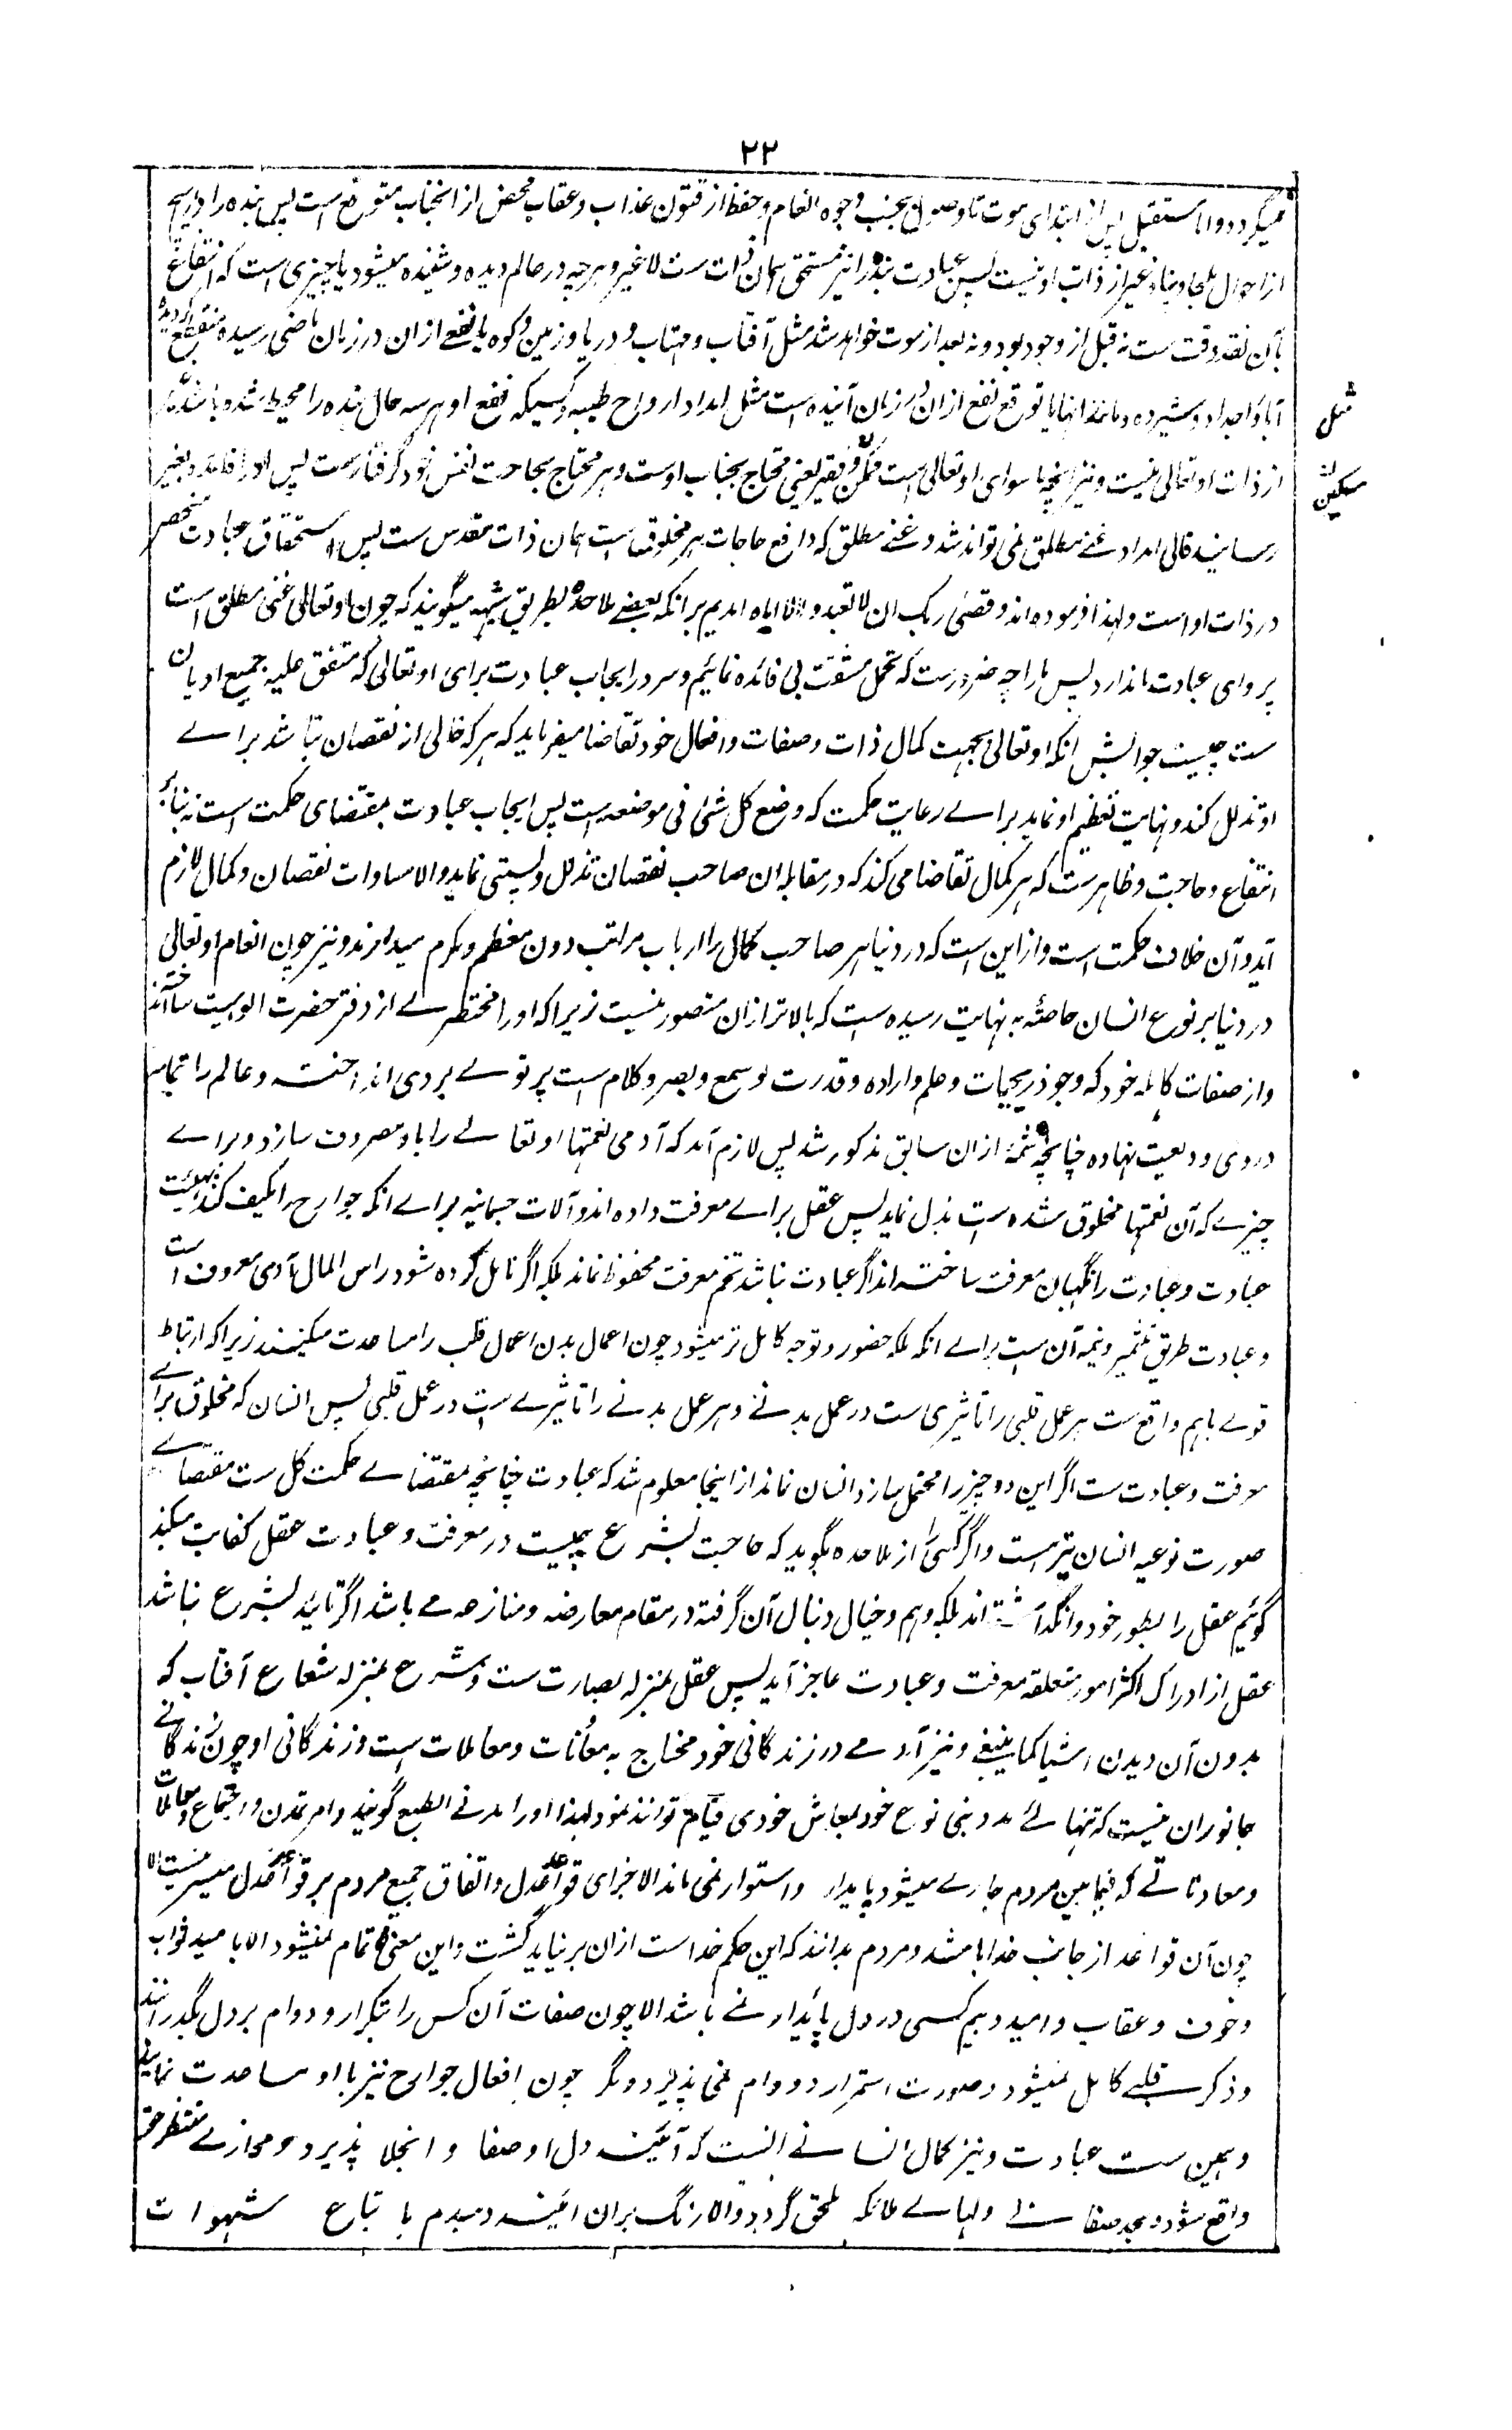 ۲۲
میگردد و اما مستقبل پس از ابتدای موت تا وصول بجنت وجوه انعام و حفظ از فنون عذاب و عقاب محض از انجناب متوقع است پس بنده را در هیچ
از احوال ملجا و پناه غیر از ذات او نیست پس عبادت بنده را نیز مستحق همان ذات ست لا غیر و هر چه در عالم دیده و شنیده میشود یا چیزی است که انتفاع
بآن نقد وقت ست نه قبل از وجود بود و نه بعد از موت خواهد شد مثل آفتاب و مهتاب و دریا و زمین و کوه یا نفعے ازان در زمان ماضی رسیده منقطع گردیده
مثل
آبا و اجداد و شیر ده و مانند انها یا توقع نفع ازان در زمان آینده است مثل امداد ارواح طیبه و کسیکه نفع او هر سه حال بنده را محیط شده باشد
از ذات او تعالی نیست و نیز انچه ما سوای او تعالی است ممکن و فقیر یعنی محتاج بجناب اوست و هر محتاج بحاجت نفس خود گرفتارست پس او را فائده بغیر
رسانیدن
امداد غنے مطلق نمی تواند شد و غنے مطلق که دافع حاجات هر مخلوق است همان ذات مقدس ست پس استحقاق عبادت منحصر
در ذات او است و لهذا فرموده اند و قضی ربک ان لا تعبدوا الا ایاه امدیم بر انکه بعضے ملاحده بطریق شبهه میگویند که چون او تعالی غنی مطلق است
پروای عبادت ما ندارد پس ما را چه ضرورست که تحمل مشقت بی فائده نمائیم و سر در ایجاب عبادت برای او تعالی که متفق علیه جمیع ادیان
ست چیست جوابش انکه او تعالی بجهت کمال ذات و صفات و افعال خود تقاضا میفرماید که هر که خالی از نقصان نباشد براے
او تذلل کند و نهایت تعظیم او نماید براے رعایت حکمت که وضع کل شئ فی موضعه است پس ایجاب عبادت بمقتضای حکمت است نه بنابر
انتفاع و حاجت و ظاهرست که هر کمال تقاضا می کند که در مقابله ان صاحب نقصان تذلل و پستی نماید و الا مساوات نقصان و کمال لازم
آید و آن خلاف حکمت است و از این است که در دنیا هر صاحب کمال را ارباب مراتب دون معظم و مکرم میدارند و نیز چون انعام او تعالی
در دنیا بر نوع انسان خاصة به نهایت رسیده است که بالاتر ازان متصور نیست زیرا که او را مختصرے از دفتر حضرت الوهیت ساخته اند
و از صفات کامله خود که وجود و حیات و علم و اراده و قدرت و سمع و بصر و کلام است پرتوے بر وی انداخته و عالم را تمامه
در وی ودیعت نهاده چنانچه شمهٔ ازان سابق مذکور شد پس لازم آمد که آدمی نعمتها او تعالے را باو مصروف سازد و براے
چیزے که آن نعمتها مخلوق شده ست بذل نماید پس عقل براے معرفت داده اند و آلات جسمانیه براے انکه جوارح را مکیف کند بهیئت
عبادت و عبادت را نگهبان معرفت ساخته اند اگر عبادت نباشد تخم معرفت محفوظ نماند بلکه اگر تامل کرده شود راس المال آدمی معرفت است
و عبادت طریق تثمیر و تنمیه آن ست براے انکه ملکه حضور و توجه کامل تر میشود چون اعمال بدن اعمال قلب را مساعدت میکنند زیرا که ارتباط
قوے باهم واقع ست هر عمل قلبی را تاثیری ست در عمل بدنے و هر عمل بدنے را تاثیرے ست در عمل قلبی پس انسان که مخلوق براے
معرفت و عبادت ست اگر این دو چیز را مختل سازد انسان نماند از اینجا معلوم شد که عبادت چنانچه مقتضاے حکمت کل ست مقتضاے
صورت نوعیه انسان نیز هست و اگر کسی از ملاحده بگوید که حاجت بشرع چیست در معرفت و عبادت عقل کفایت میکند
گوئیم عقل را بطور خود وانگذاشته اند بلکه وهم و خیال دنبال آن گرفته در مقام معارضه و منازعه مے باشد اگر تائید بشرع نباشد
عقل از ادراک اکثر امور متعلقه معرفت و عبادت عاجز آید پس عقل بمنزله بصارت ست و شرع بمنزله شعاع آفتاب که
بدون آن دیدن اشیا کما ینبغے و نیز آدمے در زندگانی خود محتاج به معاونات و معاملات است و زندگانی او چون زندگانے
جانوران نیست که تنهائے بے مدد بنی نوع خود بمعاش خودی قیام تواند نمود لهذا او را مدنے الطبع گویند و امر تمدن و اجتماع و معاملات
و معاونانے که فیمابین مردم جارے میشود پایدار و استوار نمی ماند الا باجرای قواعد عدل و اتفاق جمیع مردم بر قواعد عدل میسر نیست الا
چون آن قواعد از جانب خدا باشد و مردم بدانند که این حکم خداست ازان بر نباید گشت و این معنی تمام نمیشود الا بامید ثواب
و خوف و عقاب و امید و بیم کسی در دل پائیدار نمے باشد الا چون صفات آن کس را بتکرار و دوام بر دل بگذرانند
و ذکر قلبے کامل نمیشود و صورت استمرار و دوام نمی پذیرد مگر چون افعال جوارح نیز با او مساعدت نمایند
و همین ست عبادت و نیز کمال انسانے انست که آئینه دل او صفا و انجلا پذیرد و محاذے
واقع شود و بحد صفا والا زنگ بران آئینه دمبدم باتباع شهوات